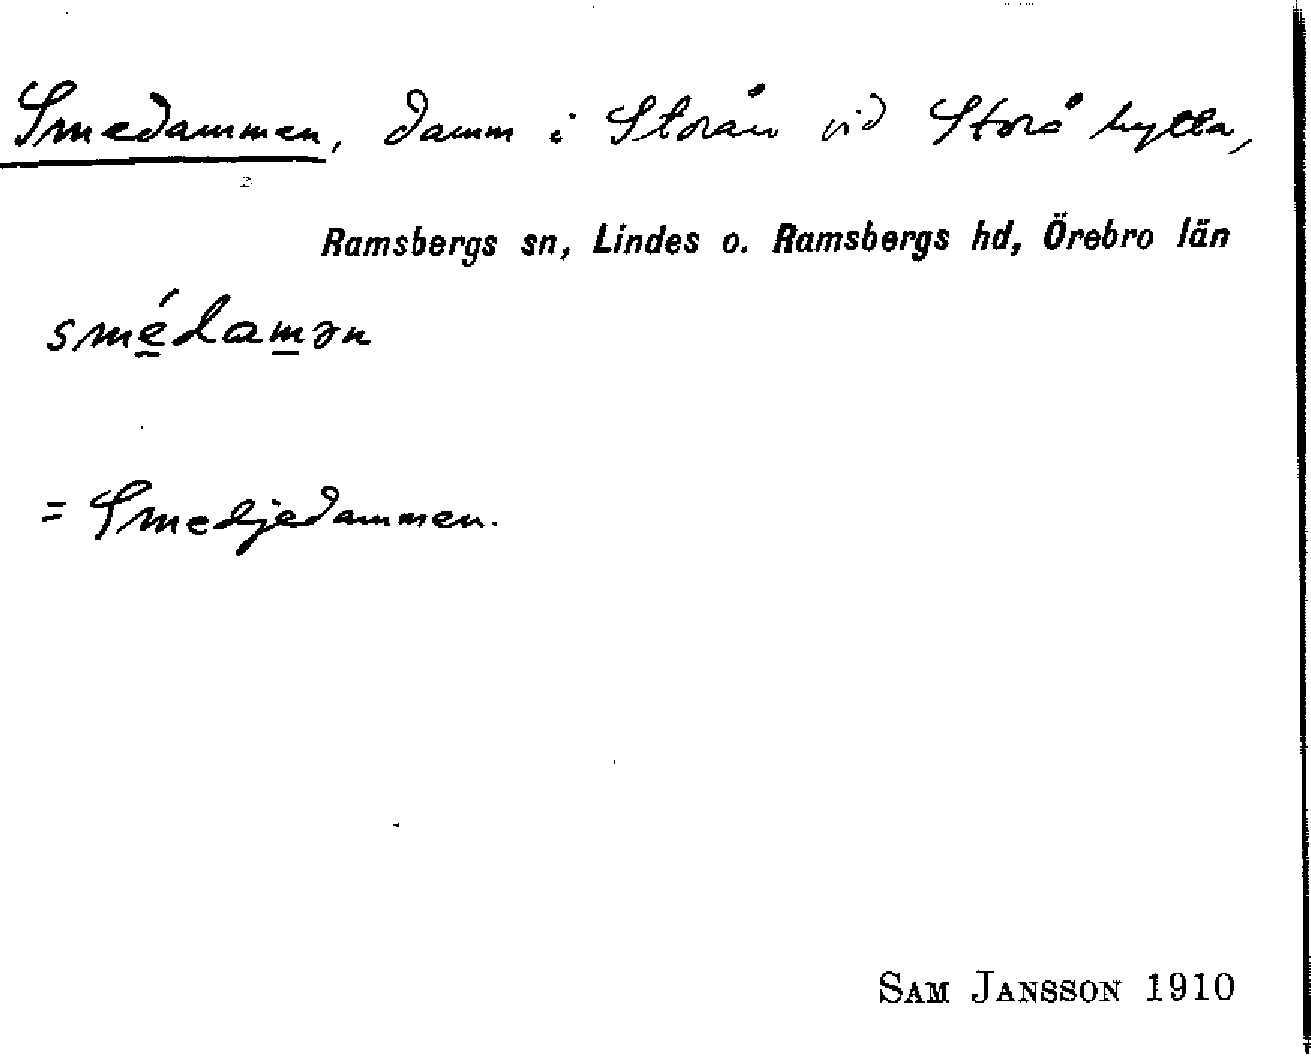 Smedammen, damm i Storån vid Storå hytta,
Ramsbergs sn, Lindes o. Ramsbergs hd, Örebro län
smé̱dam̱ən
= Smedjedammen.
SAM JANSSON 1910